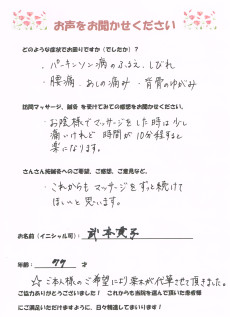 お声をお聞かせください
どのような症状でお困りですか（でしたか）？
・パーキンソン病のふるえ・しびれ
・腰痛・あしの痛み・背骨のゆがみ
訪問マッサージ、鍼灸を受けてみての感想をお聞かせください。
お陰様でマッサージをした時は少し
痛いけれど時間が10分程すると
楽になります。
さんさん治鍼灸へのご希望、ご感想、ご意見など、
・これからもマッサージをずっと続けて
ほしいと思います。
お名前（イニシャル可）：
年齢： 77 才
☆ご本人様のご希望により 代筆させて頂きました。
ご協力ありがとうございました！ これからも当院を選んで頂いた患者様
にご満足いただけますように、日々精進してまいります！